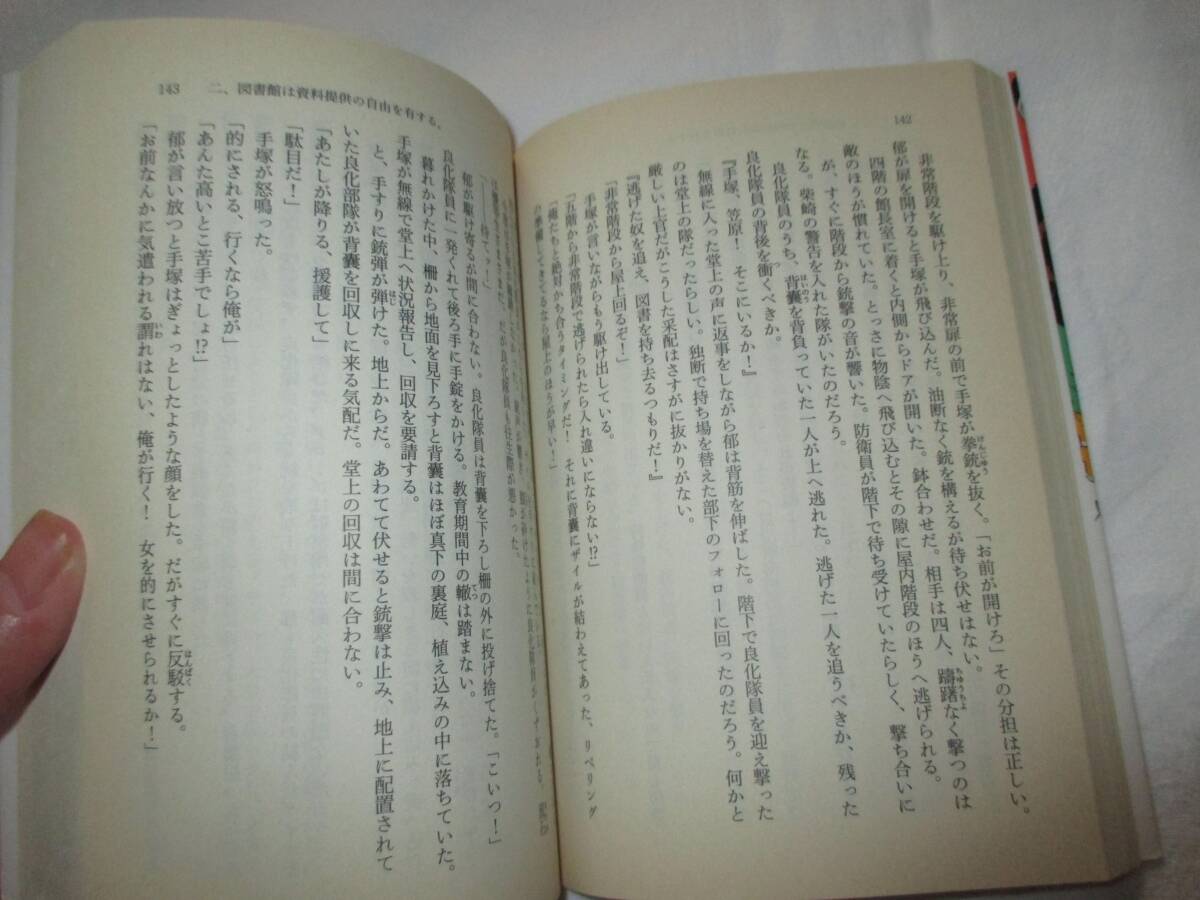 142
非常階段を駆け上り、非常扉の前で手塚が拳銃を抜く。「お前が開けろ」その分担は正しい。
郁が扉を開けると手塚が飛び込んだ。油断なく銃を構えるが待ち伏せはない。
四階の館長室に着くと内側からドアが開いた。鉢合わせだ。相手は四人、躊躇なく撃つのは
敵のほうが慣れていた。とっさに物陰へ飛び込むとその隙に屋内階段のほうへ逃げられる。
が、すぐに階段から銃撃の音が響いた。防衛員が階下で待ち受けていたらしく、撃ち合いに
なる。柴崎の警告を入れた隊がいたのだろう。
良化隊員のうち、背嚢を背負っていた一人が上へ逃れた。逃げた一人を追うべきか、残った
良化隊員の背後を衝くべきか。
『手塚、笠原！　そこにいるか！』
無線に入った堂上の声に返事をしながら郁は背筋を伸ばした。階下で良化隊員を迎え撃った
のは堂上の隊だったらしい。独断で持ち場を替えた部下のフォローに回ったのだろう。何かと
厳しい上官だがこうした采配はさすがに抜かりがない。
『逃げた奴を追え、図書を持ち去るつもりだ！』
「非常階段から屋上回るぞ！」
手塚が言いながらもう駆け出している。
「五階から非常階段で逃げられたら入れ違いにならない!?」
「俺たちと絶対かち合うタイミングだ！　それに背嚢にザイルが結わえてあった、リペリング
143　二、図書館は資料提供の自由を有する。
「――待てっ！」
郁が駆け寄るが間に合わない。良化隊員は背嚢を下ろし柵の外に投げ捨てた。「こいつっ！」
良化隊員に一発くれて後ろ手に手錠をかける。教育期間中の轍は踏まない。
暮れかけた中、柵から地面を見下ろすと背嚢はほぼ真下の裏庭、植え込みの中に落ちていた。
手塚が無線で堂上へ状況報告し、回収を要請する。
と、手すりに銃弾が弾けた。地上からだ。あわてて伏せると銃撃は止み、地上に配置されて
いた良化部隊が背嚢を回収しに来る気配だ。堂上の回収は間に合わない。
「あたしが降りる、援護して」
「駄目だ！」
手塚が怒鳴った。
「的にされる、行くなら俺が」
「あんた高いとこ苦手でしょ!?」
郁が言い放つと手塚はぎょっとしたような顔をした。だがすぐに反駁する。
「お前なんかに気遣われる謂れはない、俺が行く！　女を的にさせられるか！」